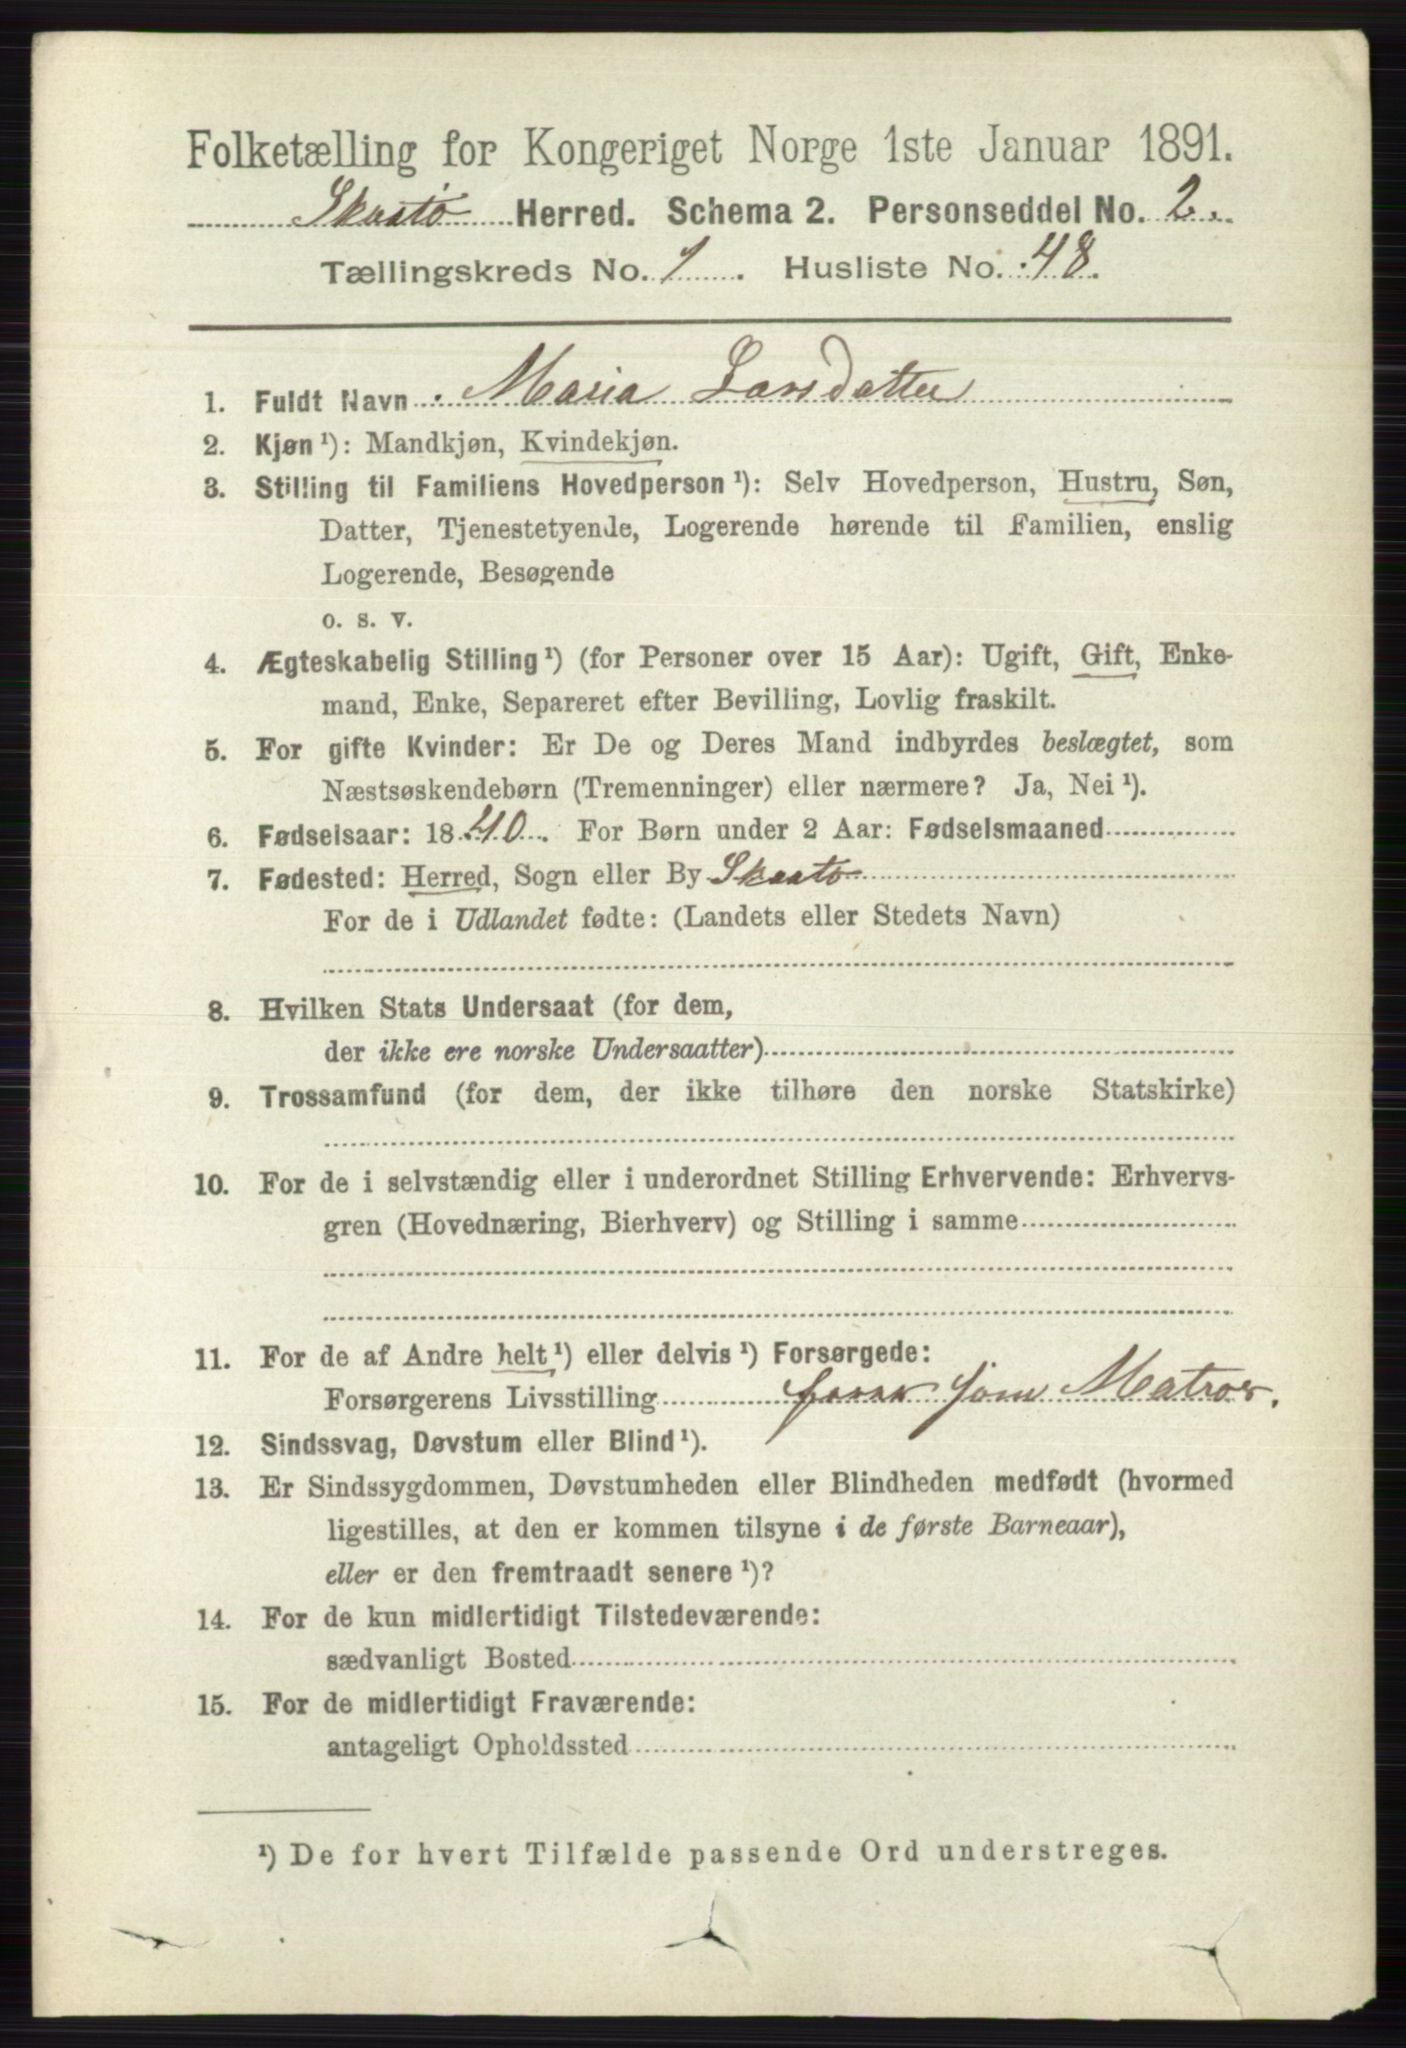 Folketælling for Kongeriget Norge 1ste Januar 1891.
Skaatø Herred. Schema 2. Personseddel No. 2.
Tællingskreds No. 1. Husliste No. 48.
1. Fuldt Navn Maria Larsdatter
2. Kjøn ¹): Mandkjøn, Kvindekjøn.
3. Stilling til Familiens Hovedperson ¹): Selv Hovedperson, Hustru, Søn,
Datter, Tjenestetyende, Logerende hørende til Familien, enslig
Logerende, Besøgende
o. s. v.
4. Ægteskabelig Stilling ¹) (for Personer over 15 Aar): Ugift, Gift, Enke-
mand, Enke, Separeret efter Bevilling, Lovlig fraskilt.
5. For gifte Kvinder: Er De og Deres Mand indbyrdes beslægtet, som
Næstsøskendebørn (Tremenninger) eller nærmere? Ja, Nei ¹).
6. Fødselsaar: 1840. For Børn under 2 Aar: Fødselsmaaned
7. Fødested: Herred, Sogn eller By Skaatø
For de i Udlandet fødte: (Landets eller Stedets Navn)
8. Hvilken Stats Undersaat (for dem,
der ikke ere norske Undersaatter)
9. Trossamfund (for dem, der ikke tilhøre den norske Statskirke)
10. For de i selvstændig eller i underordnet Stilling Erhvervende: Erhvervs-
gren (Hovednæring, Bierhverv) og Stilling i samme
11. For de af Andre helt ¹) eller delvis ¹) Forsørgede:
Forsørgerens Livsstilling som Matros.
12. Sindssvag, Døvstum eller Blind ¹).
13. Er Sindssygdommen, Døvstumheden eller Blindheden medfødt (hvormed
ligestilles, at den er kommen tilsyne i de første Barneaar),
eller er den fremtraadt senere ¹)?
14. For de kun midlertidigt Tilstedeværende:
sædvanligt Bosted
15. For de midlertidigt Fraværende:
antageligt Opholdssted
¹) De for hvert Tilfælde passende Ord understreges.